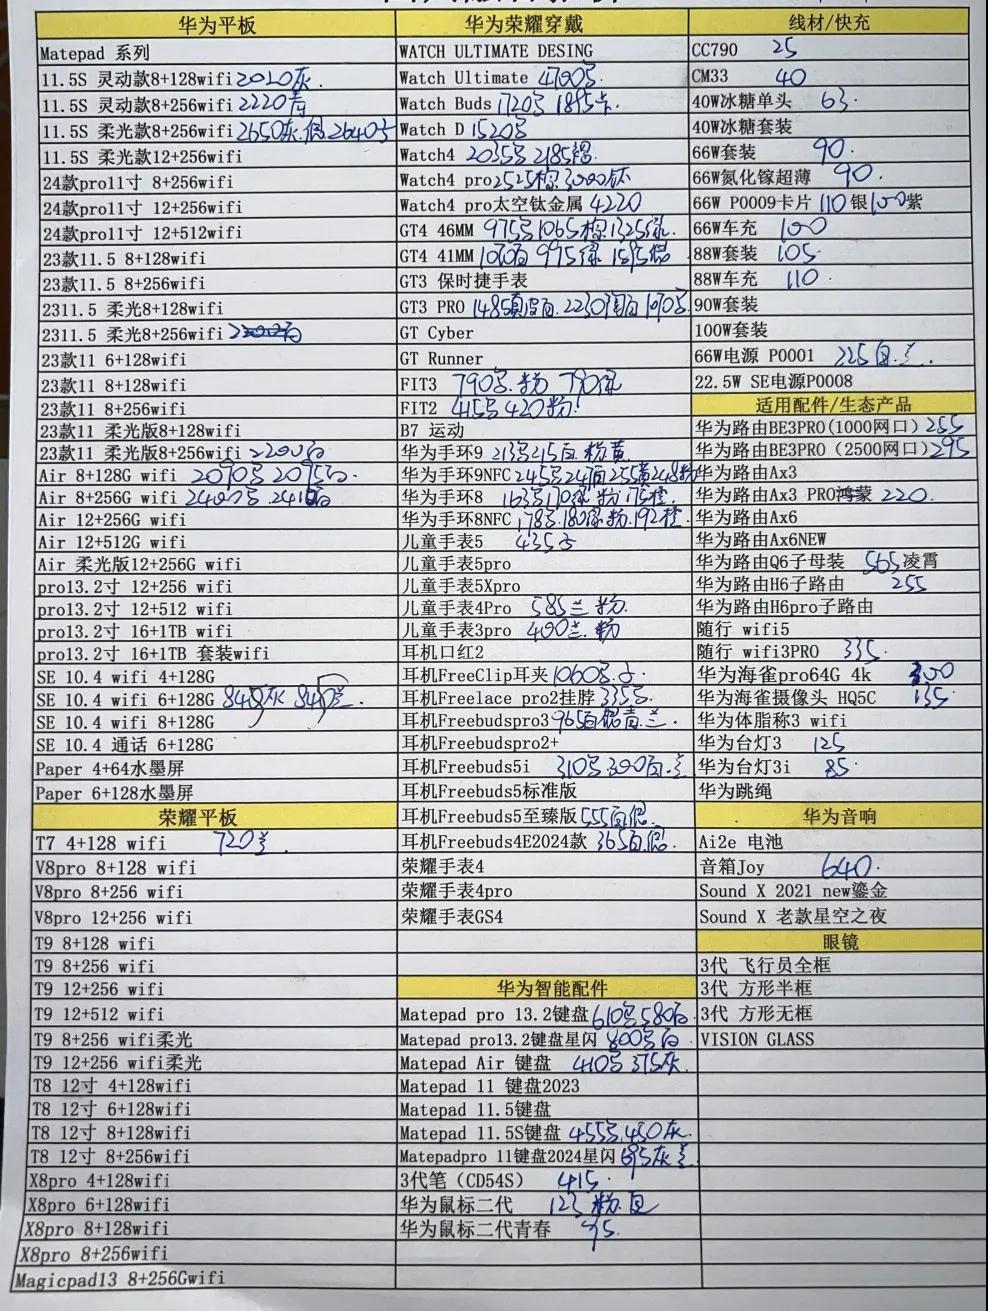 华为平板
Matepad 系列
11.5S 灵动款8+128wifi 2010灰
11.5S 灵动款8+256wifi 2220
11.5S 柔光款8+256wifi 2650灰 2640
11.5S 柔光款12+256wifi
24款pro11寸 8+256wifi
24款pro11寸 12+256wifi
24款pro11寸 12+512wifi
23款11.5 8+128wifi
23款11.5 8+256wifi
2311.5 柔光8+128wifi
2311.5 柔光8+256wifi
23款11 6+128wifi
23款11 8+128wifi
23款11 8+256wifi
23款11 柔光版8+128wifi
23款11 柔光版8+256wifi 2200
Air 8+128G wifi 2090 2095
Air 8+256G wifi 2400 2410
Air 12+256G wifi
Air 12+512G wifi
Air 柔光版12+256G wifi
pro13.2寸 12+256 wifi
pro13.2寸 12+512 wifi
pro13.2寸 16+1TB wifi
pro13.2寸 16+1TB 套装wifi
SE 10.4 wifi 4+128G
SE 10.4 wifi 6+128G 灰
SE 10.4 wifi 8+128G
SE 10.4 通话 6+128G
Paper 4+64水墨屏
Paper 6+128水墨屏
荣耀平板
T7 4+128 wifi 720
V8pro 8+128 wifi
V8pro 8+256 wifi
V8pro 12+256 wifi
T9 8+128 wifi
T9 8+256 wifi
T9 12+256 wifi
T9 12+512 wifi
T9 8+256 wifi柔光
T9 12+256 wifi柔光
T8 12寸 4+128wifi
T8 12寸 6+128wifi
T8 12寸 8+128wifi
T8 12寸 8+256wifi
X8pro 4+128wifi
X8pro 6+128wifi
X8pro 8+128wifi
X8pro 8+256wifi
Magicpad13 8+256Gwifi
华为荣耀穿戴
WATCH ULTIMATE DESING
Watch Ultimate 4700
Watch Buds 1720 1895
Watch D 1520
Watch4 2035 2185
Watch4 pro 2525棕 3000钛
Watch4 pro太空钛金属 4220
GT4 46MM 975 1065棕 1325绿
GT4 41MM 1070白 995绿 1595
GT3 保时捷手表
GT3 PRO 1485 2230
GT Cyber
GT Runner
FIT3 790 粉 790绿
FIT2 415 420粉
B7 运动
华为手环9 213 215白 粉 黄
华为手环9NFC 245 247白 255黄 248粉
华为手环8 163 170绿 粉 175橙
华为手环8NFC 178 180绿 粉 192橙
儿童手表5 435
儿童手表5pro
儿童手表5Xpro
儿童手表4Pro 585兰 粉
儿童手表3pro 400兰 粉
耳机口红2
耳机FreeClip耳夹 1060
耳机Freelace pro2挂脖 335
耳机Freebudspro3 965白银青兰
耳机Freebudspro2+
耳机Freebuds5i 310 300白
耳机Freebuds5标准版
耳机Freebuds5至臻版 555白银
耳机Freebuds4E2024款 365白银
荣耀手表4
荣耀手表4pro
荣耀手表GS4
华为智能配件
Matepad pro 13.2键盘 610 580白
Matepad pro13.2键盘星闪 800 白
Matepad Air 键盘 410 375灰
Matepad 11 键盘2023
Matepad 11.5键盘
Matepad 11.5S键盘 455 430灰
Matepadpro 11键盘2024星闪 695灰
3代笔（CD54S） 415
华为鼠标二代 123 粉 白
华为鼠标二代青春 75
线材/快充
CC790 25
CM33 40
40W冰糖单头 63
40W冰糖套装
66W套装 90
66W氮化镓超薄 90
66W P0009卡片 110银 100紫
66W车充 100
88W套装 105
88W车充 110
90W套装
100W套装
66W电源 P0001 225
22.5W SE电源P0008
适用配件/生态产品
华为路由BE3PRO(1000网口) 255
华为路由BE3PRO（2500网口) 295
华为路由Ax3
华为路由Ax3 PRO鸿蒙 220
华为路由Ax6
华为路由Ax6NEW
华为路由Q6子母装 565凌霄
华为路由H6子路由 255
华为路由H6pro子路由
随行 wifi5
随行 wifi3PRO 335
华为海雀pro64G 4k 300
华为海雀摄像头 HQ5C 135
华为体脂称3 wifi
华为台灯3 125
华为台灯3i 85
华为跳绳
华为音响
Ai2e 电池
音箱Joy 640
Sound X 2021 new鎏金
Sound X 老款星空之夜
眼镜
3代 飞行员全框
3代 方形半框
3代 方形无框
VISION GLASS